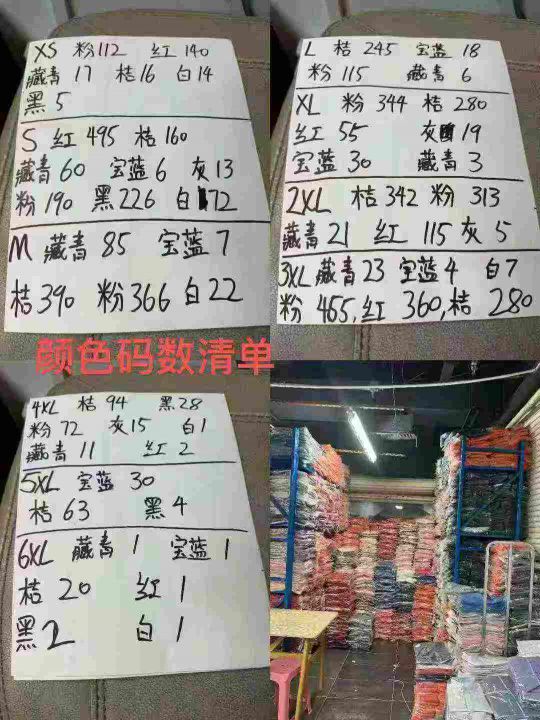 XS 粉112 红 140
藏青 17 桔16 白14
黑 5
S 红 495 桔 160
藏青 60 宝蓝 6 灰 13
粉 190 黑 226 白 172
M 藏青 85 宝蓝 7
桔 390 粉 366 白 22
L 桔 245 宝蓝 18
粉 115 藏青 6
XL 粉 344 桔 280
红 55 灰 19
宝蓝 30 藏青 3
2XL 桔 342 粉 313
藏青 21 红 115 灰 5
3XL 藏青 23 宝蓝 4 白 7
粉 465, 红 360, 桔 280
颜色码数清单
4XL 桔 94 黑 28
粉 72 灰 15 白 1
藏青 11 红 2
5XL 宝蓝 30
桔 63 黑 4
6XL 藏青 1 宝蓝 1
桔 20 红 1
黑 2 白 1